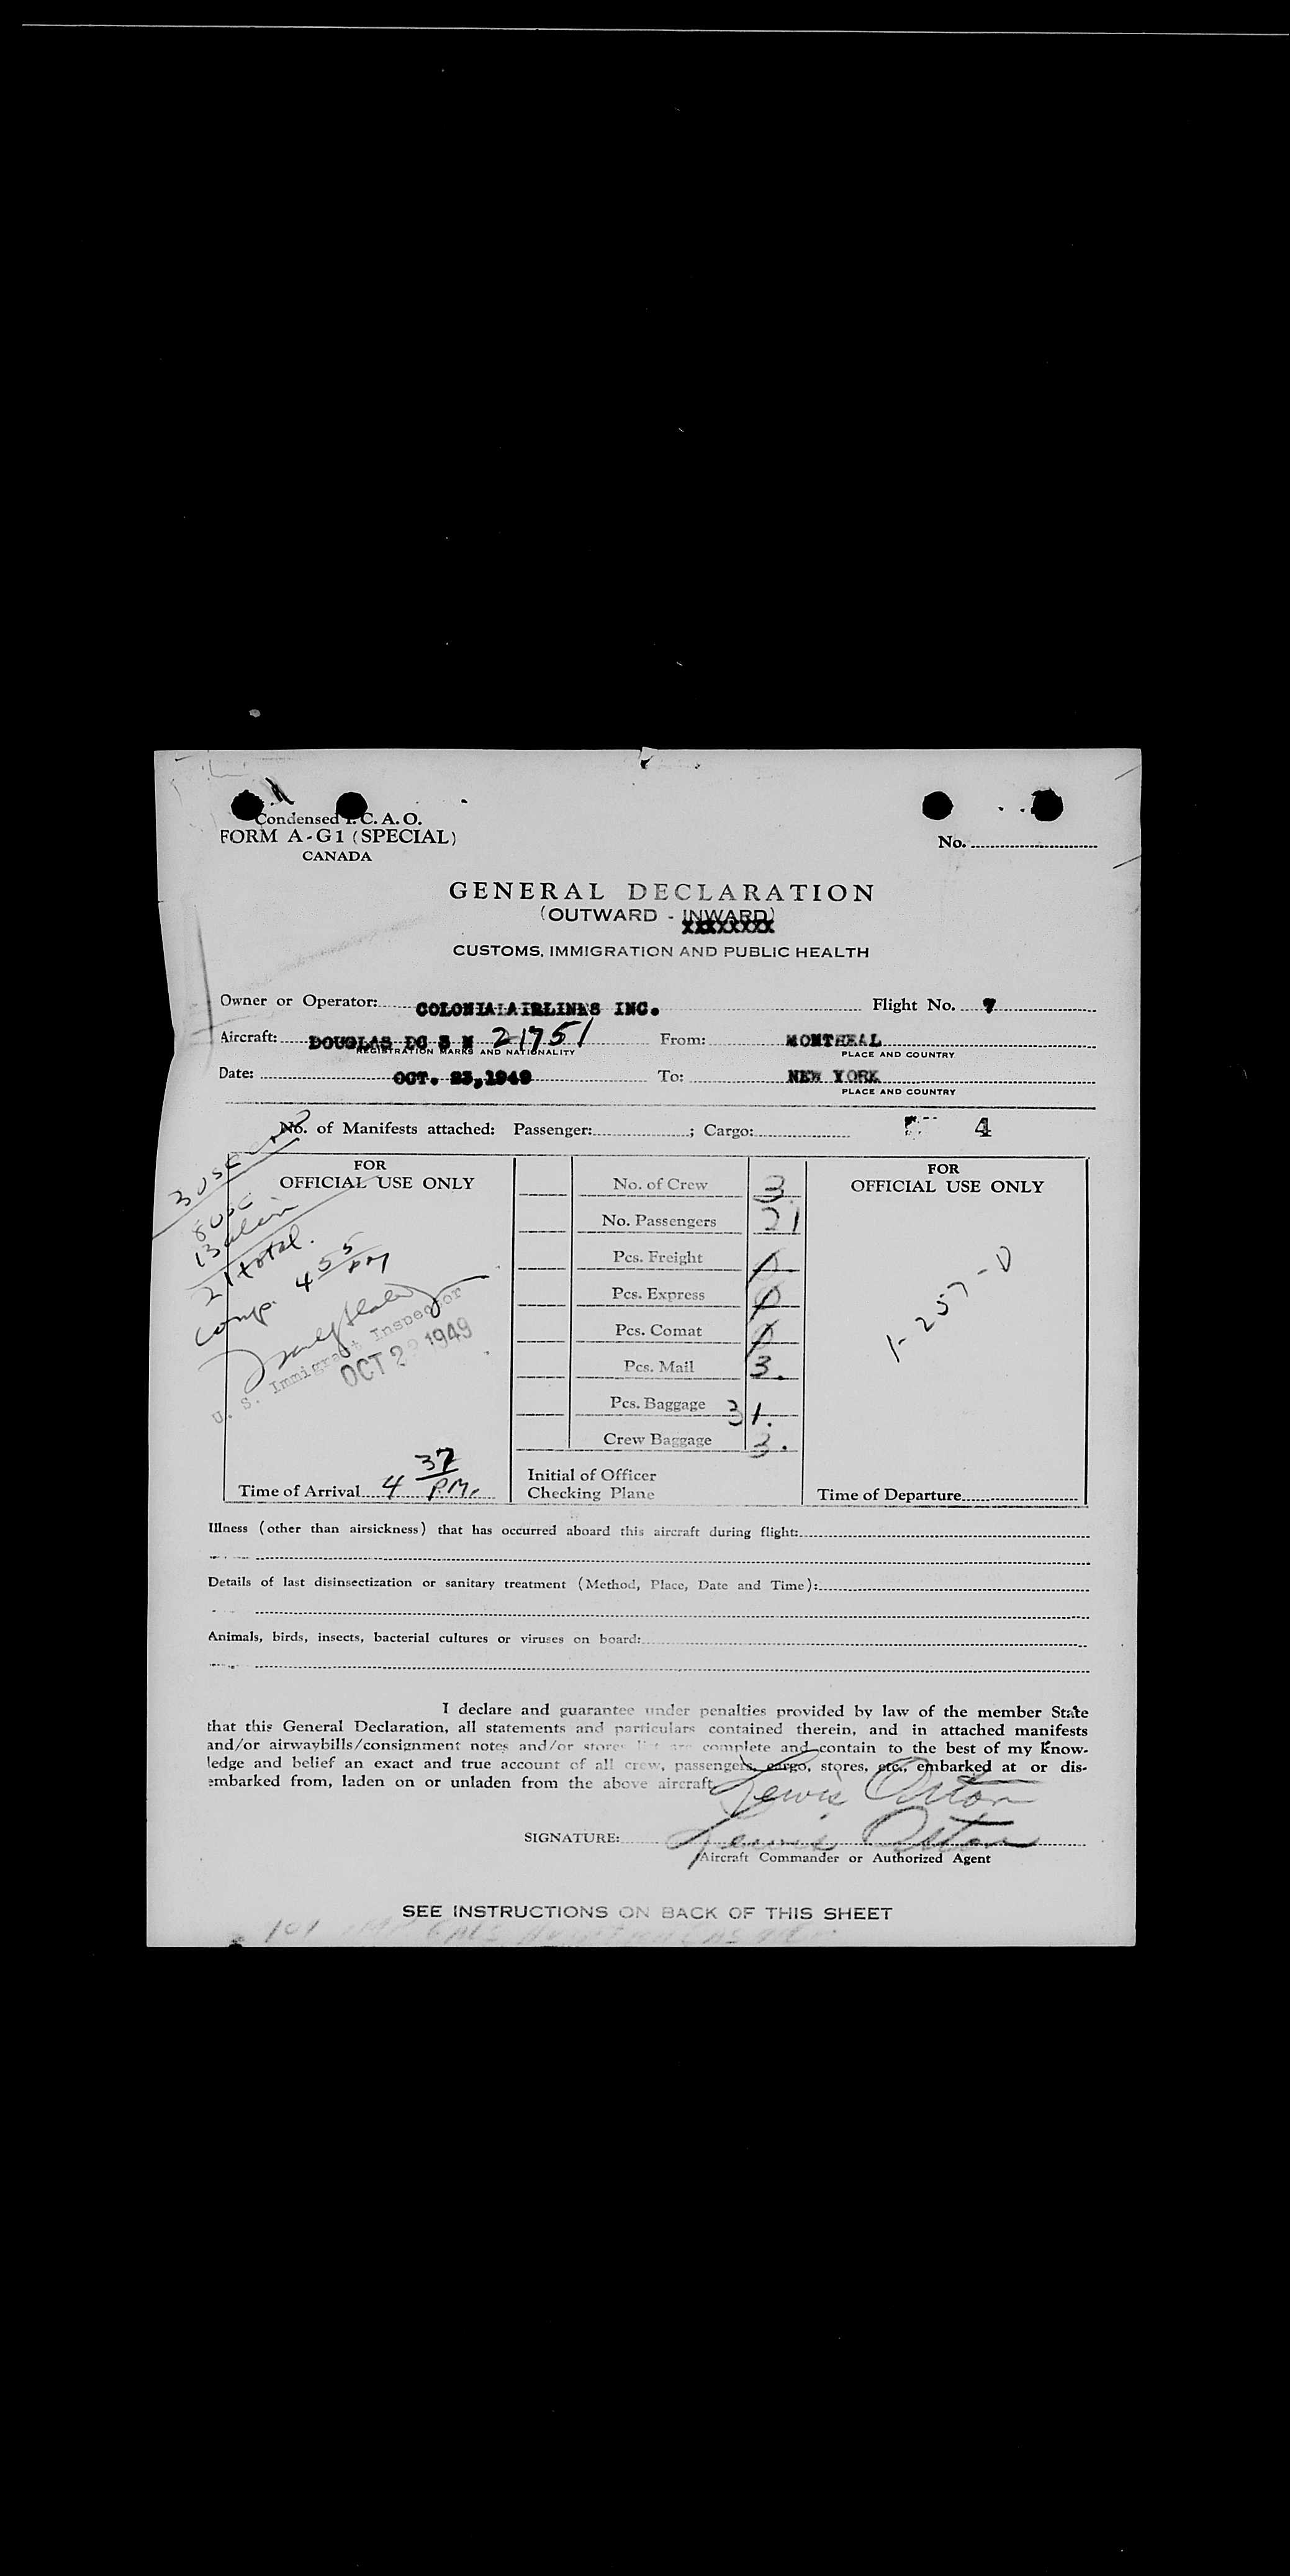 Condensed I. C. A. O.
FORM A-G1 (SPECIAL)
CANADA
No.
GENERAL DECLARATION
(OUTWARD - INWARD)
XXXXXXXX
CUSTOMS, IMMIGRATION AND PUBLIC HEALTH
Owner or Operator: COLONIAL AIRLINES INC. Flight No. 7
Aircraft: DOUGLAS DC 3 N 21751 From: MONTREAL
REGISTRATION MARKS AND NATIONALITY PLACE AND COUNTRY
Date: OCT. 23,1949 To: NEW YORK
PLACE AND COUNTRY
No. of Manifests attached: Passenger: ; Cargo: 4
3 USC
8 USC
13 alien
21 total.
comp. 4 55 PM
U. S. Immigrant Inspector
OCT 2 1949
FOR
OFFICIAL USE ONLY
Time of Arrival 4 37 P.M.
No. of Crew 3
No. Passengers 21
Pcs. Freight
Pcs. Express
Pcs. Comat
Pcs. Mail 3.
Pcs. Baggage 31.
Crew Baggage 3.
Initial of Officer
Checking Plane
FOR
OFFICIAL USE ONLY
1-257-0
Time of Departure
Illness (other than airsickness) that has occurred aboard this aircraft during flight:
Details of last disinsectization or sanitary treatment (Method, Place, Date and Time):
Animals, birds, insects, bacterial cultures or viruses on board:
I declare and guarantee under penalties provided by law of the member State
that this General Declaration, all statements and particulars contained therein, and in attached manifests
and/or airwaybills/consignment notes and/or stores list are complete and contain to the best of my know-
ledge and belief an exact and true account of all crew, passengers, cargo, stores, etc., embarked at or dis-
embarked from, laden on or unladen from the above aircraft.
Lewis
SIGNATURE: Lewis
Aircraft Commander or Authorized Agent
SEE INSTRUCTIONS ON BACK OF THIS SHEET